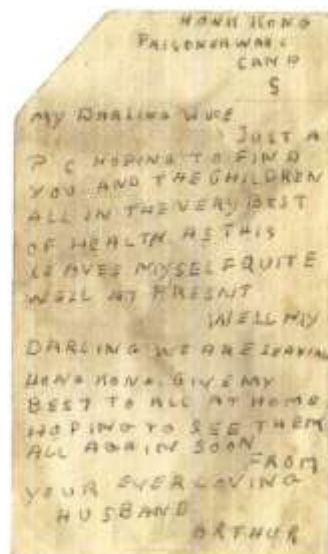 HONK KONG
PRISONER WAR.
CAMP
S
MY DARLING WIFE
JUST A
P C HOPING TO FIND
YOU AND THE CHILDREN
ALL IN THE VERY BEST
OF HEALTH. AS THIS
LEAVES MYSELF QUITE
WELL AT PRESNT
WELL MY
DARLING WE ARE LEAVING
HONG KONG. GIVE MY
BEST TO ALL AT HOME
HOPING TO SEE THEM
ALL AGAIN SOON
FROM
YOUR EVER LOVING
HUSBAND
ARTHUR